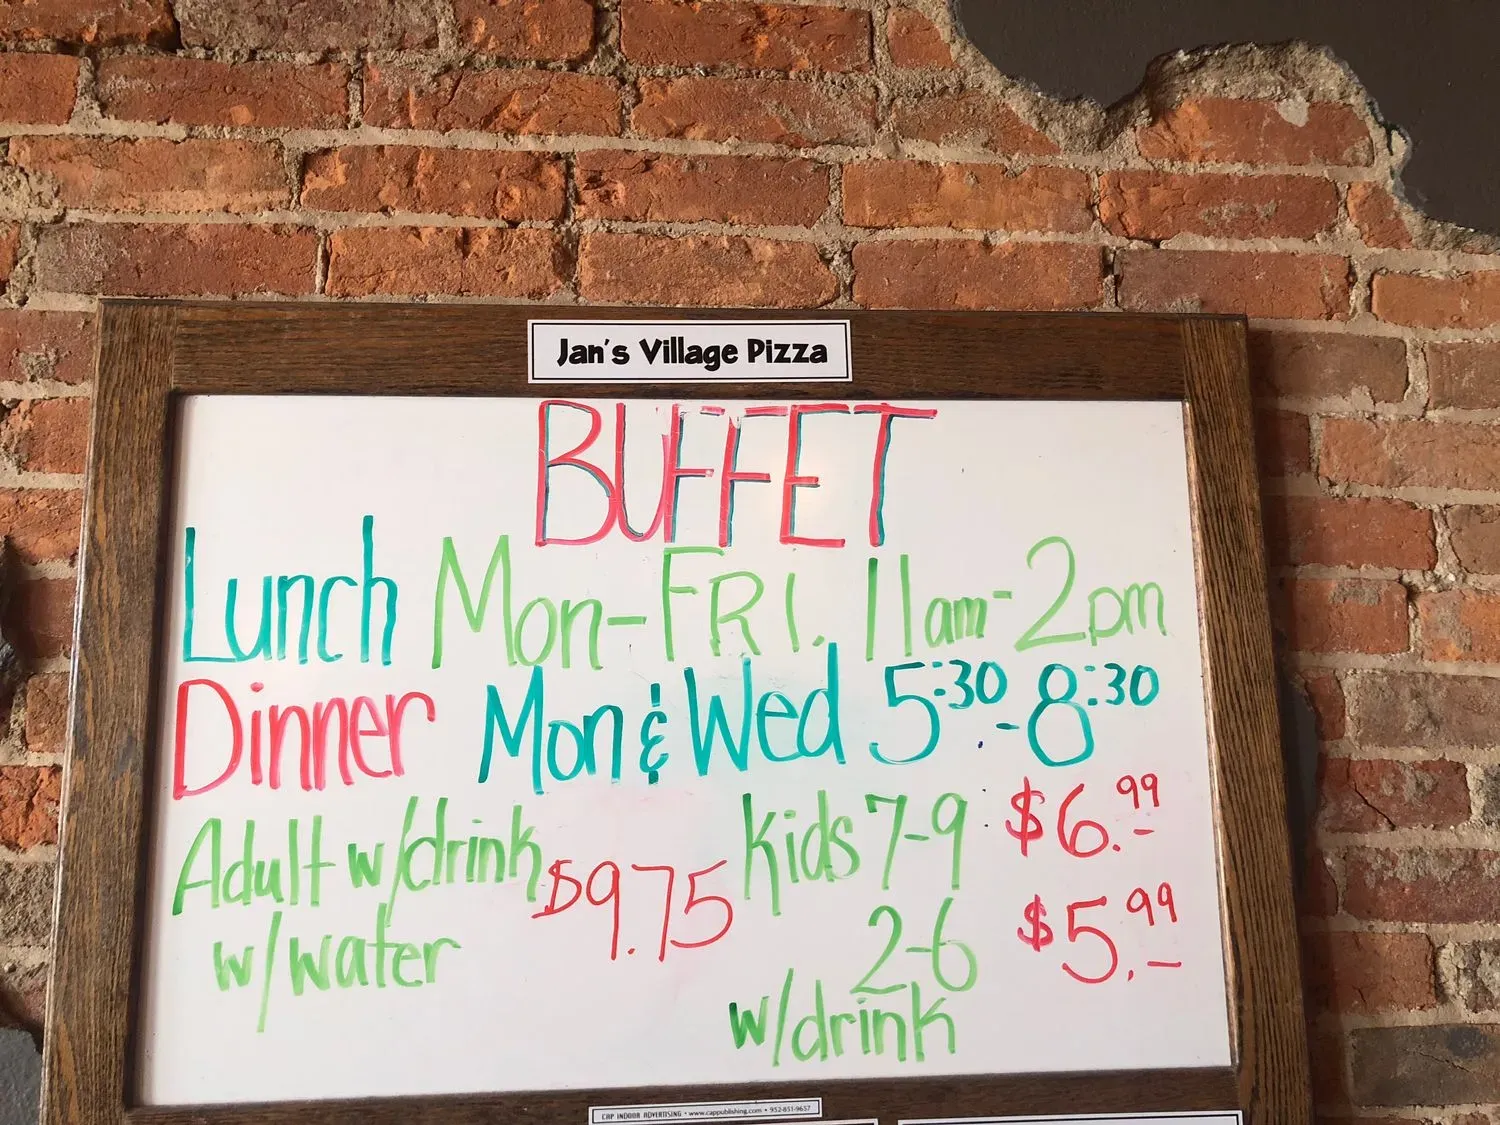 Jan's Village Pizza
BUFFET
Lunch Mon-FRI. 11am-2pm
Dinner Mon & Wed 5:30-8:30
Adult w/drink $9.75 Kids 7-9 $6.99
w/water 2-6 $5.99
w/drink
CAP INDOOR ADVERTISING • www.cappublishing.com • 952-851-9657